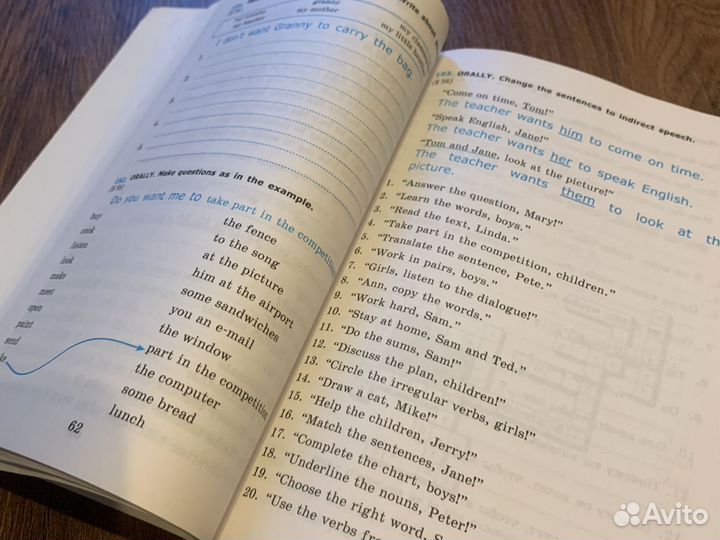 granny
my mother
write about
my class
my little
I don't want Granny to carry the bag.
1.
2.
3.
4.
5.
192. ORALLY. Make questions as in the example.
(§ 56)
Do you want me to take part in the competition
buy
cook
listen
look
make
meet
open
paint
send
the fence
to the song
at the picture
him at the airport
some sandwiches
you an e-mail
the window
part in the competition
the computer
some bread
lunch
62
193. ORALLY. Change the sentences to indirect speech.
(§ 56)
"Come on time, Tom!"
The teacher wants him to come on time.
"Speak English, Jane!"
The teacher wants her to speak English.
"Tom and Jane, look at the picture!"
The teacher wants them to look at the
picture.
1. "Answer the question, Mary!"
2. "Learn the words, boys."
3. "Read the text, Linda."
4. "Take part in the competition, children."
5. "Translate the sentence, Pete."
6. "Work in pairs, boys."
7. "Girls, listen to the dialogue!"
8. "Ann, copy the words."
9. "Work hard, Sam."
10. "Stay at home, Sam and Ted."
11. "Do the sums, Sam!"
12. "Discuss the plan, children!"
13. "Circle the irregular verbs, girls!"
14. "Draw a cat, Mike!"
15. "Help the children, Jerry!"
16. "Match the sentences, Jane!"
17. "Complete the chart, boys!"
18. "Underline the nouns, Peter!"
19. "Choose the right word, S
20. "Use the verbs
Avito